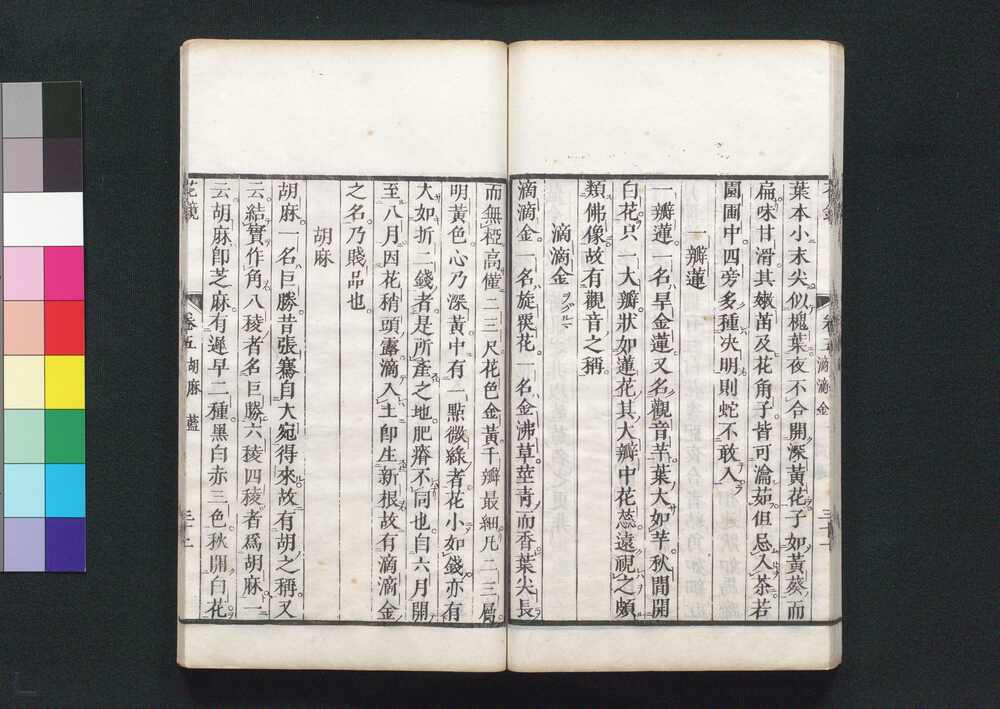 葉本小末尖似槐葉夜不合開深黃花子如黃葵而
扁味甘滑其嫩苗及花角子皆可瀹茹但忌入茶若
園圃中四旁多種決明則蛇不敢入
一瓣蓮
一瓣蓮一名旱金蓮又名觀音芋葉大如芋秋間開
白花只一大瓣狀如蓮花其大瓣中花蕊遠視之頗
類佛像故有觀音之稱
滴滴金
滴滴金一名旋覆花一名金沸草莖青而香葉尖長
而無椏高僅二三尺花色金黃千瓣最細凡二三層
明黃色心乃深黃中有一點微綠者花小如錢亦有
大如折二錢者是所產之地肥瘠不同也自六月開
至八月因花稍頭露滴入土卽生新根故有滴滴金
之名乃賤品也
胡麻
胡麻一名巨勝昔張騫自大宛得來故有胡之稱又
云結實作角八稜者名巨勝六稜四稜者爲胡麻一
云胡麻卽芝麻有遲早二種黑白赤三色秋開白花
花鏡
卷五 滴滴金
卷五 胡麻 藍